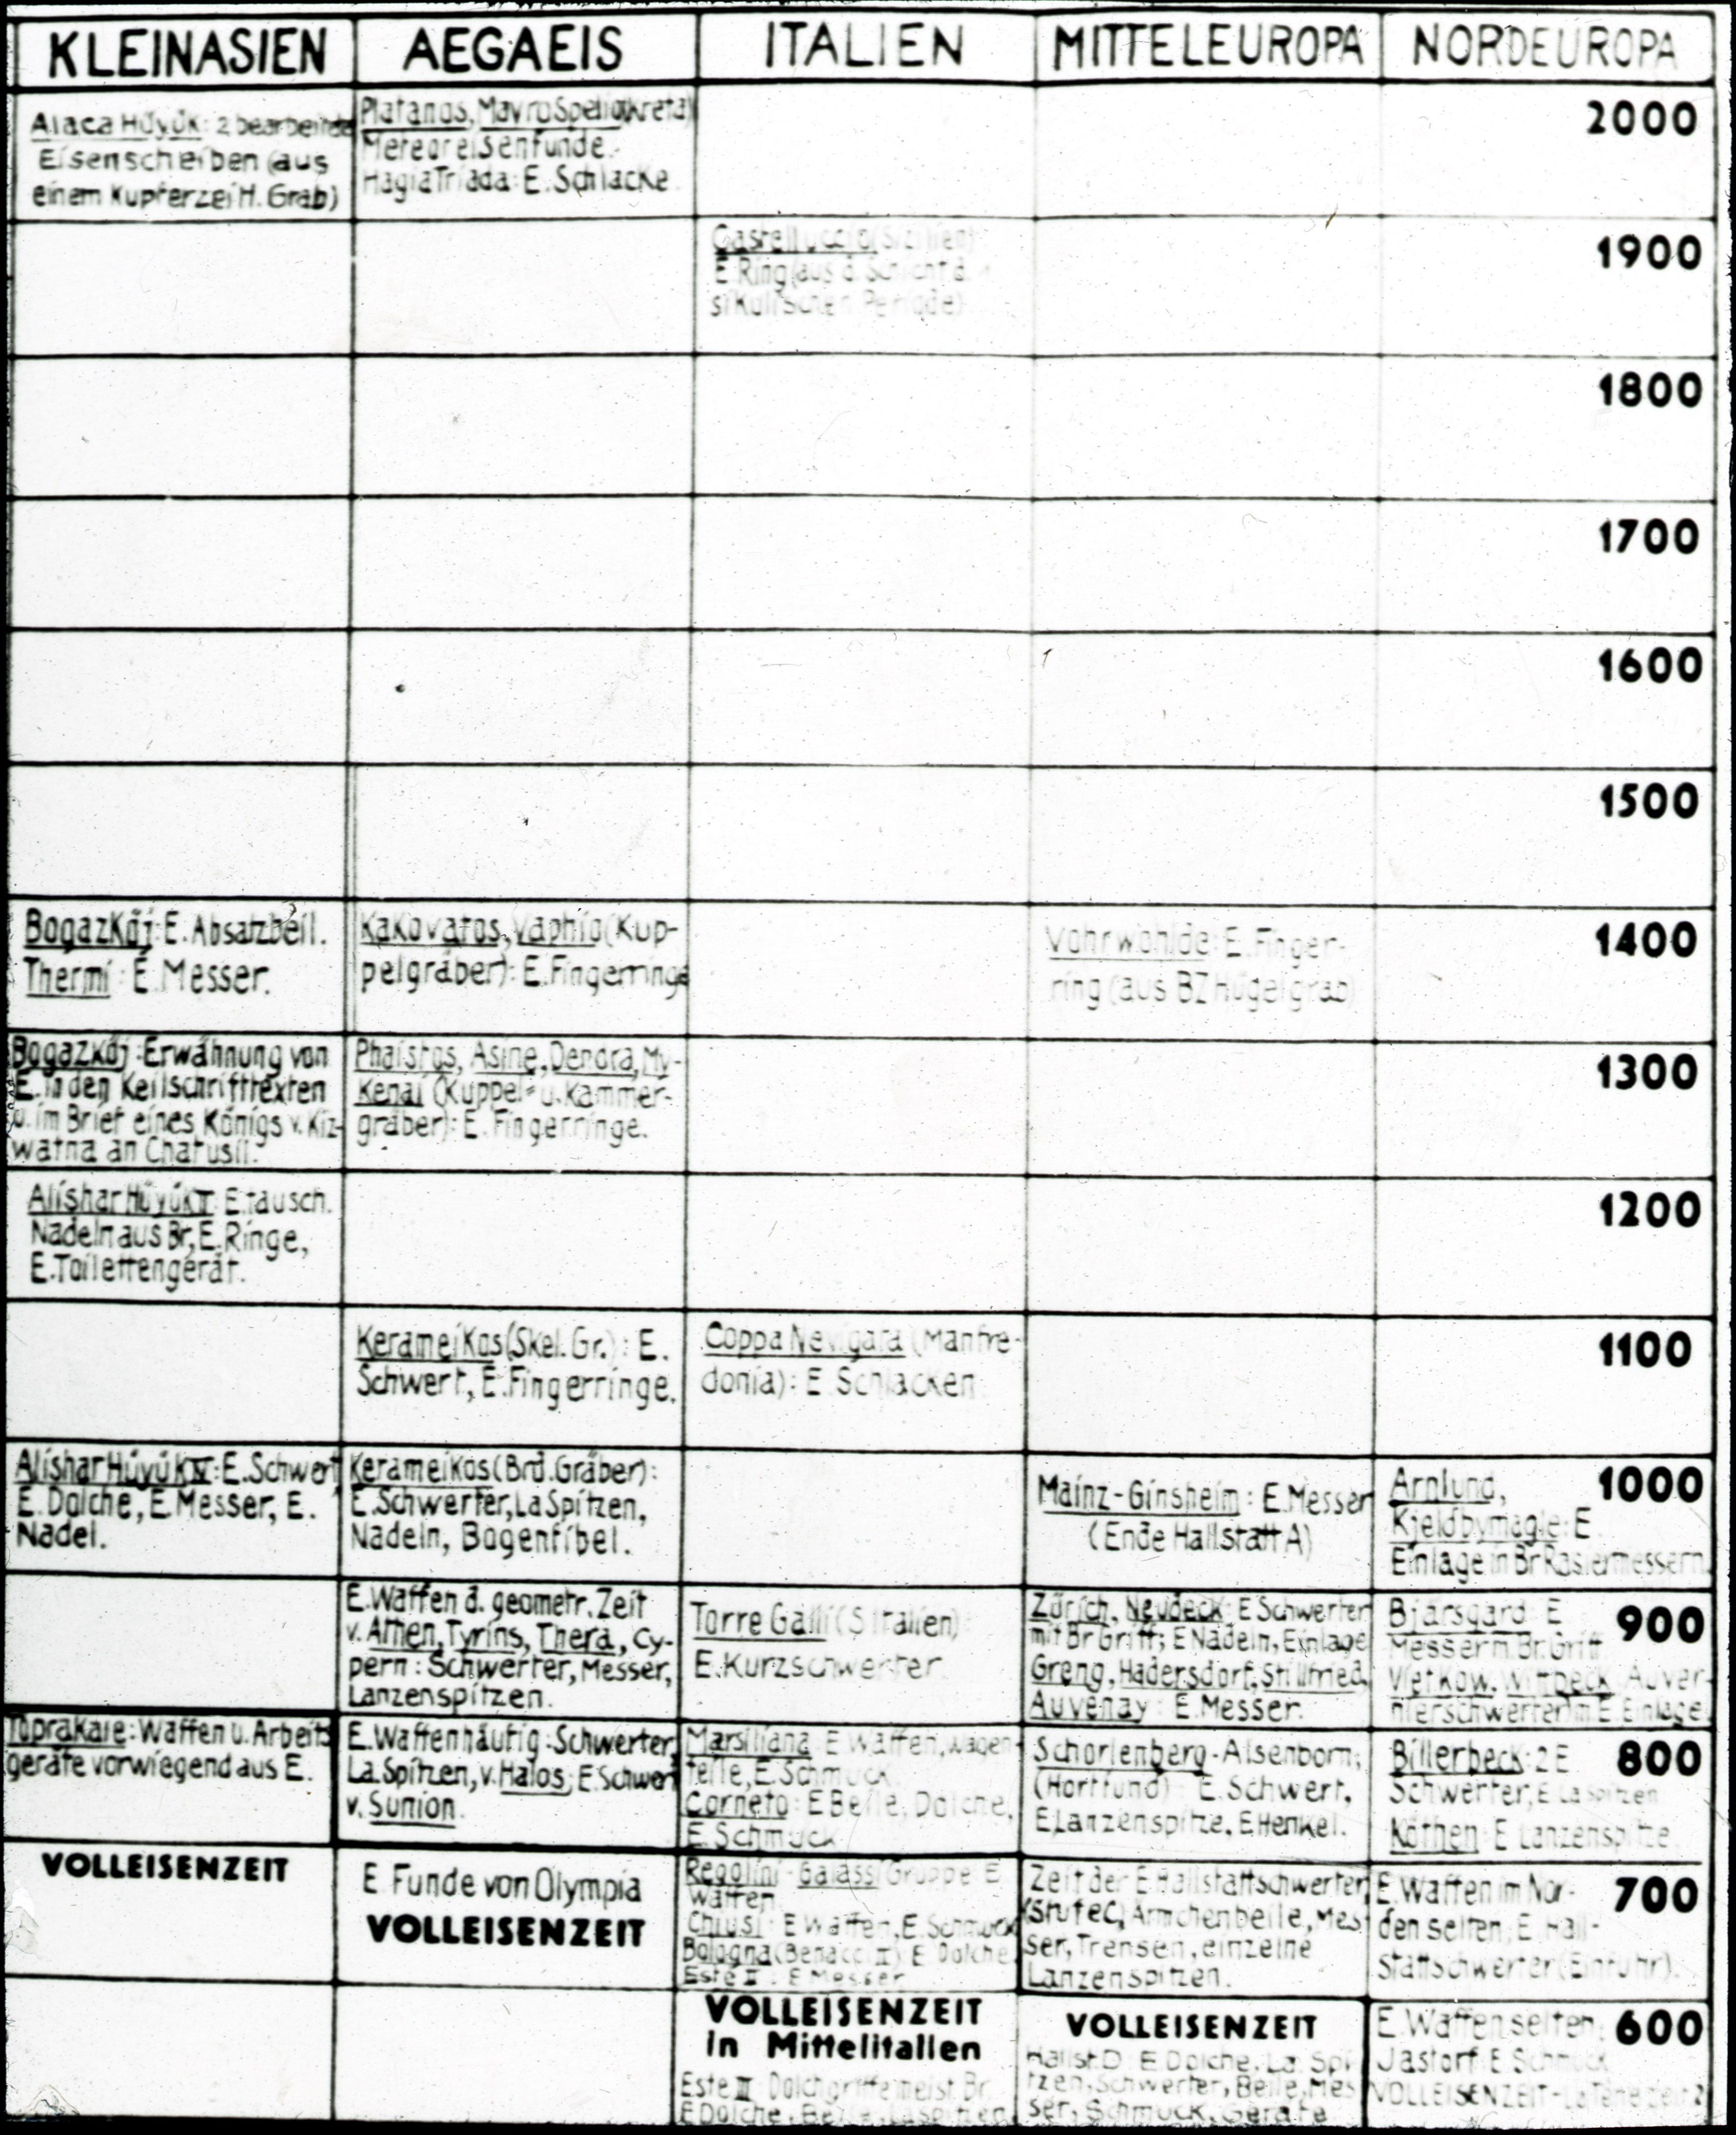 KLEINASIEN
AEGAEIS
ITALIEN
MITTELEUROPA
NORDEUROPA
Alaca Hüyük: 2 bearbeitete
Eisenscheiben (aus
einem Kupferzeitl. Grab)
Platanos, Mavro Spelio (Kreta)
Metereisenfunde.
Hagia Triada: E. Schlacke
2000
Castelluccio (Sizilien)
E Ring (aus d. Schicht d.
sikulischen Periode)
1900
1800
1700
1600
1500
Bogazköj: E. Absatzbeil.
Thermi: E. Messer.
Kakovatos, Vaphio (Kup-
pelgräber): E. Fingerringe
Vohrwohlde: E. Finger-
ring (aus BZ Hügelgrab)
1400
Bogazköj: Erwähnung von
E. in den Keilschrifttexten
u. im Brief eines Königs v. Kiz-
watna an Chatusil.
Phaistos, Asine, Dendra, My-
kenai (Kuppel- u. Kammer-
gräber): E. Fingerringe.
1300
Alishar Hüyük E. tausch.
Nadeln aus Br, E. Ringe,
E. Toilettengerät.
1200
Kerameikos (Skel. Gr.): E.
Schwert, E. Fingerringe.
Coppa Nevigata (Manfre-
donia): E Schlacken
1100
Alishar Hüyük IV: E. Schwert
E. Dolche, E. Messer, E.
Nadel.
Kerameikos (Brd. Gräber):
E. Schwerter, La Spitzen,
Nadeln, Bogenfibel.
Mainz-Ginsheim: E. Messer
(Ende Hallstatt A)
Arnlund,
Kjeldbymagle: E
Einlage in Br Rasiermessern
1000
E. Waffen d. geometr. Zeit
v. Athen, Tyrins, Thera, Cy-
pern: Schwerter, Messer,
Lanzenspitzen.
Torre Galli (S Italien)
E. Kurzschwerter
Zürich, Neudeck: E Schwerter
mit Br Griff; E Nadeln, Einlage
Greng, Hadersdorf, Stillfried,
Auvenay: E. Messer.
Bjärsgard: E
Messer m. Br. Griff
Vietkow, Wittbeck Auver-
nierschwerter m E. Einlage
900
Toprakale: Waffen u. Arbeits
geräte vorwiegend aus E.
E. Waffen häufig: Schwerter,
La. Spitzen, v. Halos; E Schwert
v. Sunion.
Marsiliana E Waffen, Wagen-
teile, E. Schmuck
Corneto: E Beile, Dolche,
E. Schmuck
Schorlenberg-Alsenborn;
(Hortfund) E. Schwert,
E Lanzenspitze, E Henkel.
Billerbeck: 2 E
Schwerter, E La Spitzen
Köthen E Lanzenspitze
800
VOLLEISENZEIT
E Funde von Olympia
VOLLEISENZEIT
Regolini-Galassi Gruppe E
Waffen
Chiusi: E Waffen, E. Schmuck
Bologna (Benacci II) E Dolche
Este II: E Messer
Zeit der E Hallstattschwerter
(Stufe C) Ärmchenbeile, Mes
ser, Trensen, einzelne
Lanzenspitzen.
E. Waffen im Nor-
den selten, E Hall-
stattschwerter (Einfuhr)
700
VOLLEISENZEIT
in Mittelitalien
Este III Dolchgriffe meist Br
E Dolche, Beile, La Spitzen
VOLLEISENZEIT
Hallst. D E Dolche, La Spi
tzen, Schwerter, Beile, Mes
ser, Schmuck, Geräte
E Waffen selten,
Jastorf: E Schmuck
VOLLEISENZEIT - La Tène zeit 2
600